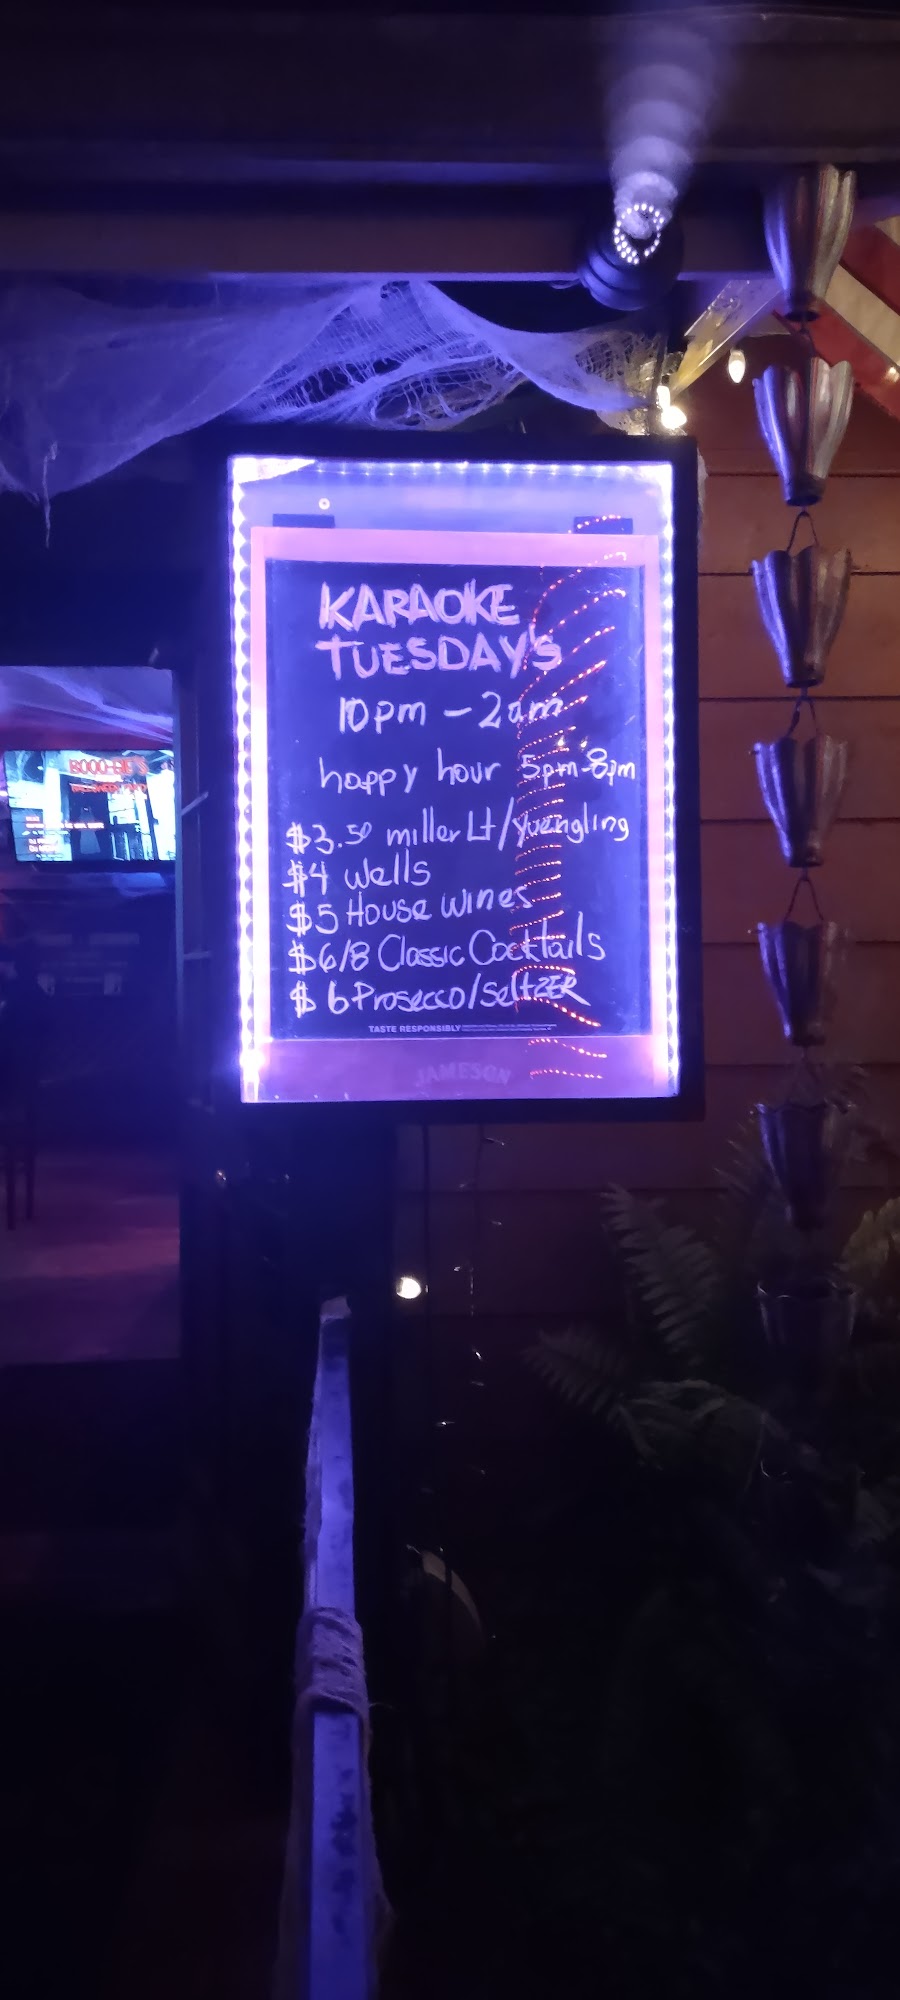 KARAOKE
TUESDAY'S
10pm - 2am
happy hour 5pm-8pm
$3.50 miller Lt/Yuengling
$4 wells
$5 House wines
$6/8 Classic Cocktails
$6 Prosecco/SeltzER
TASTE RESPONSIBLY
JAMESON